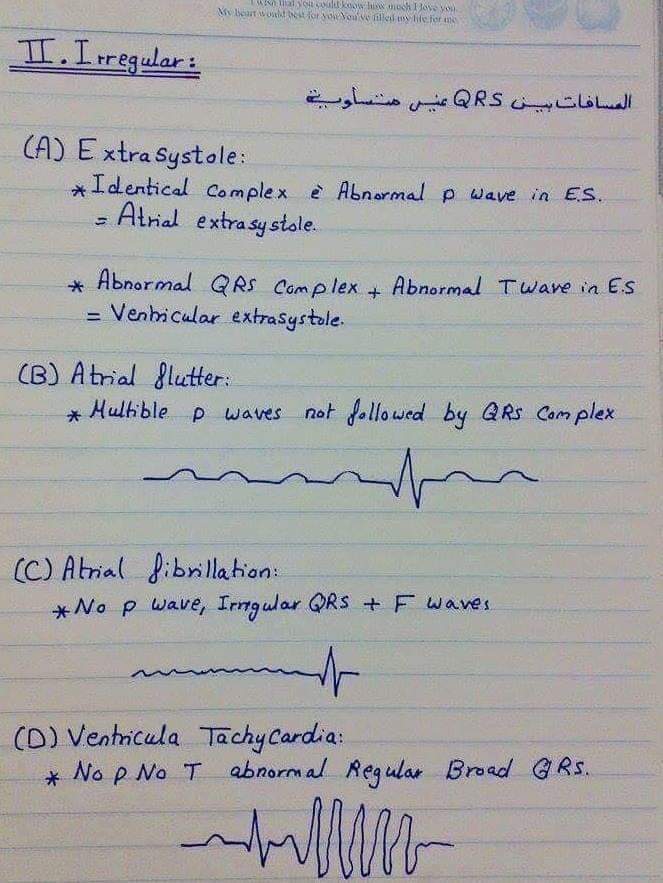 I wish that you could know how much I love you.
My heart would best for you.You've filled my life for me.
II. Irregular:
المسافات بين QRS غير متساوية
(A) Extrasystole:
* Identical Complex è Abnormal p wave in E.S.
= Atrial extrasystole.
* Abnormal QRS Complex + Abnormal T wave in E.S
= Ventricular extrasystole.
(B) Atrial flutter:
* Multible p waves not followed by QRS Complex
(C) Atrial fibrillation:
* No p wave, Irrigular QRS + F waves
(D) Ventricula Tachycardia:
* No p No T abnormal Regular Broad QRS.